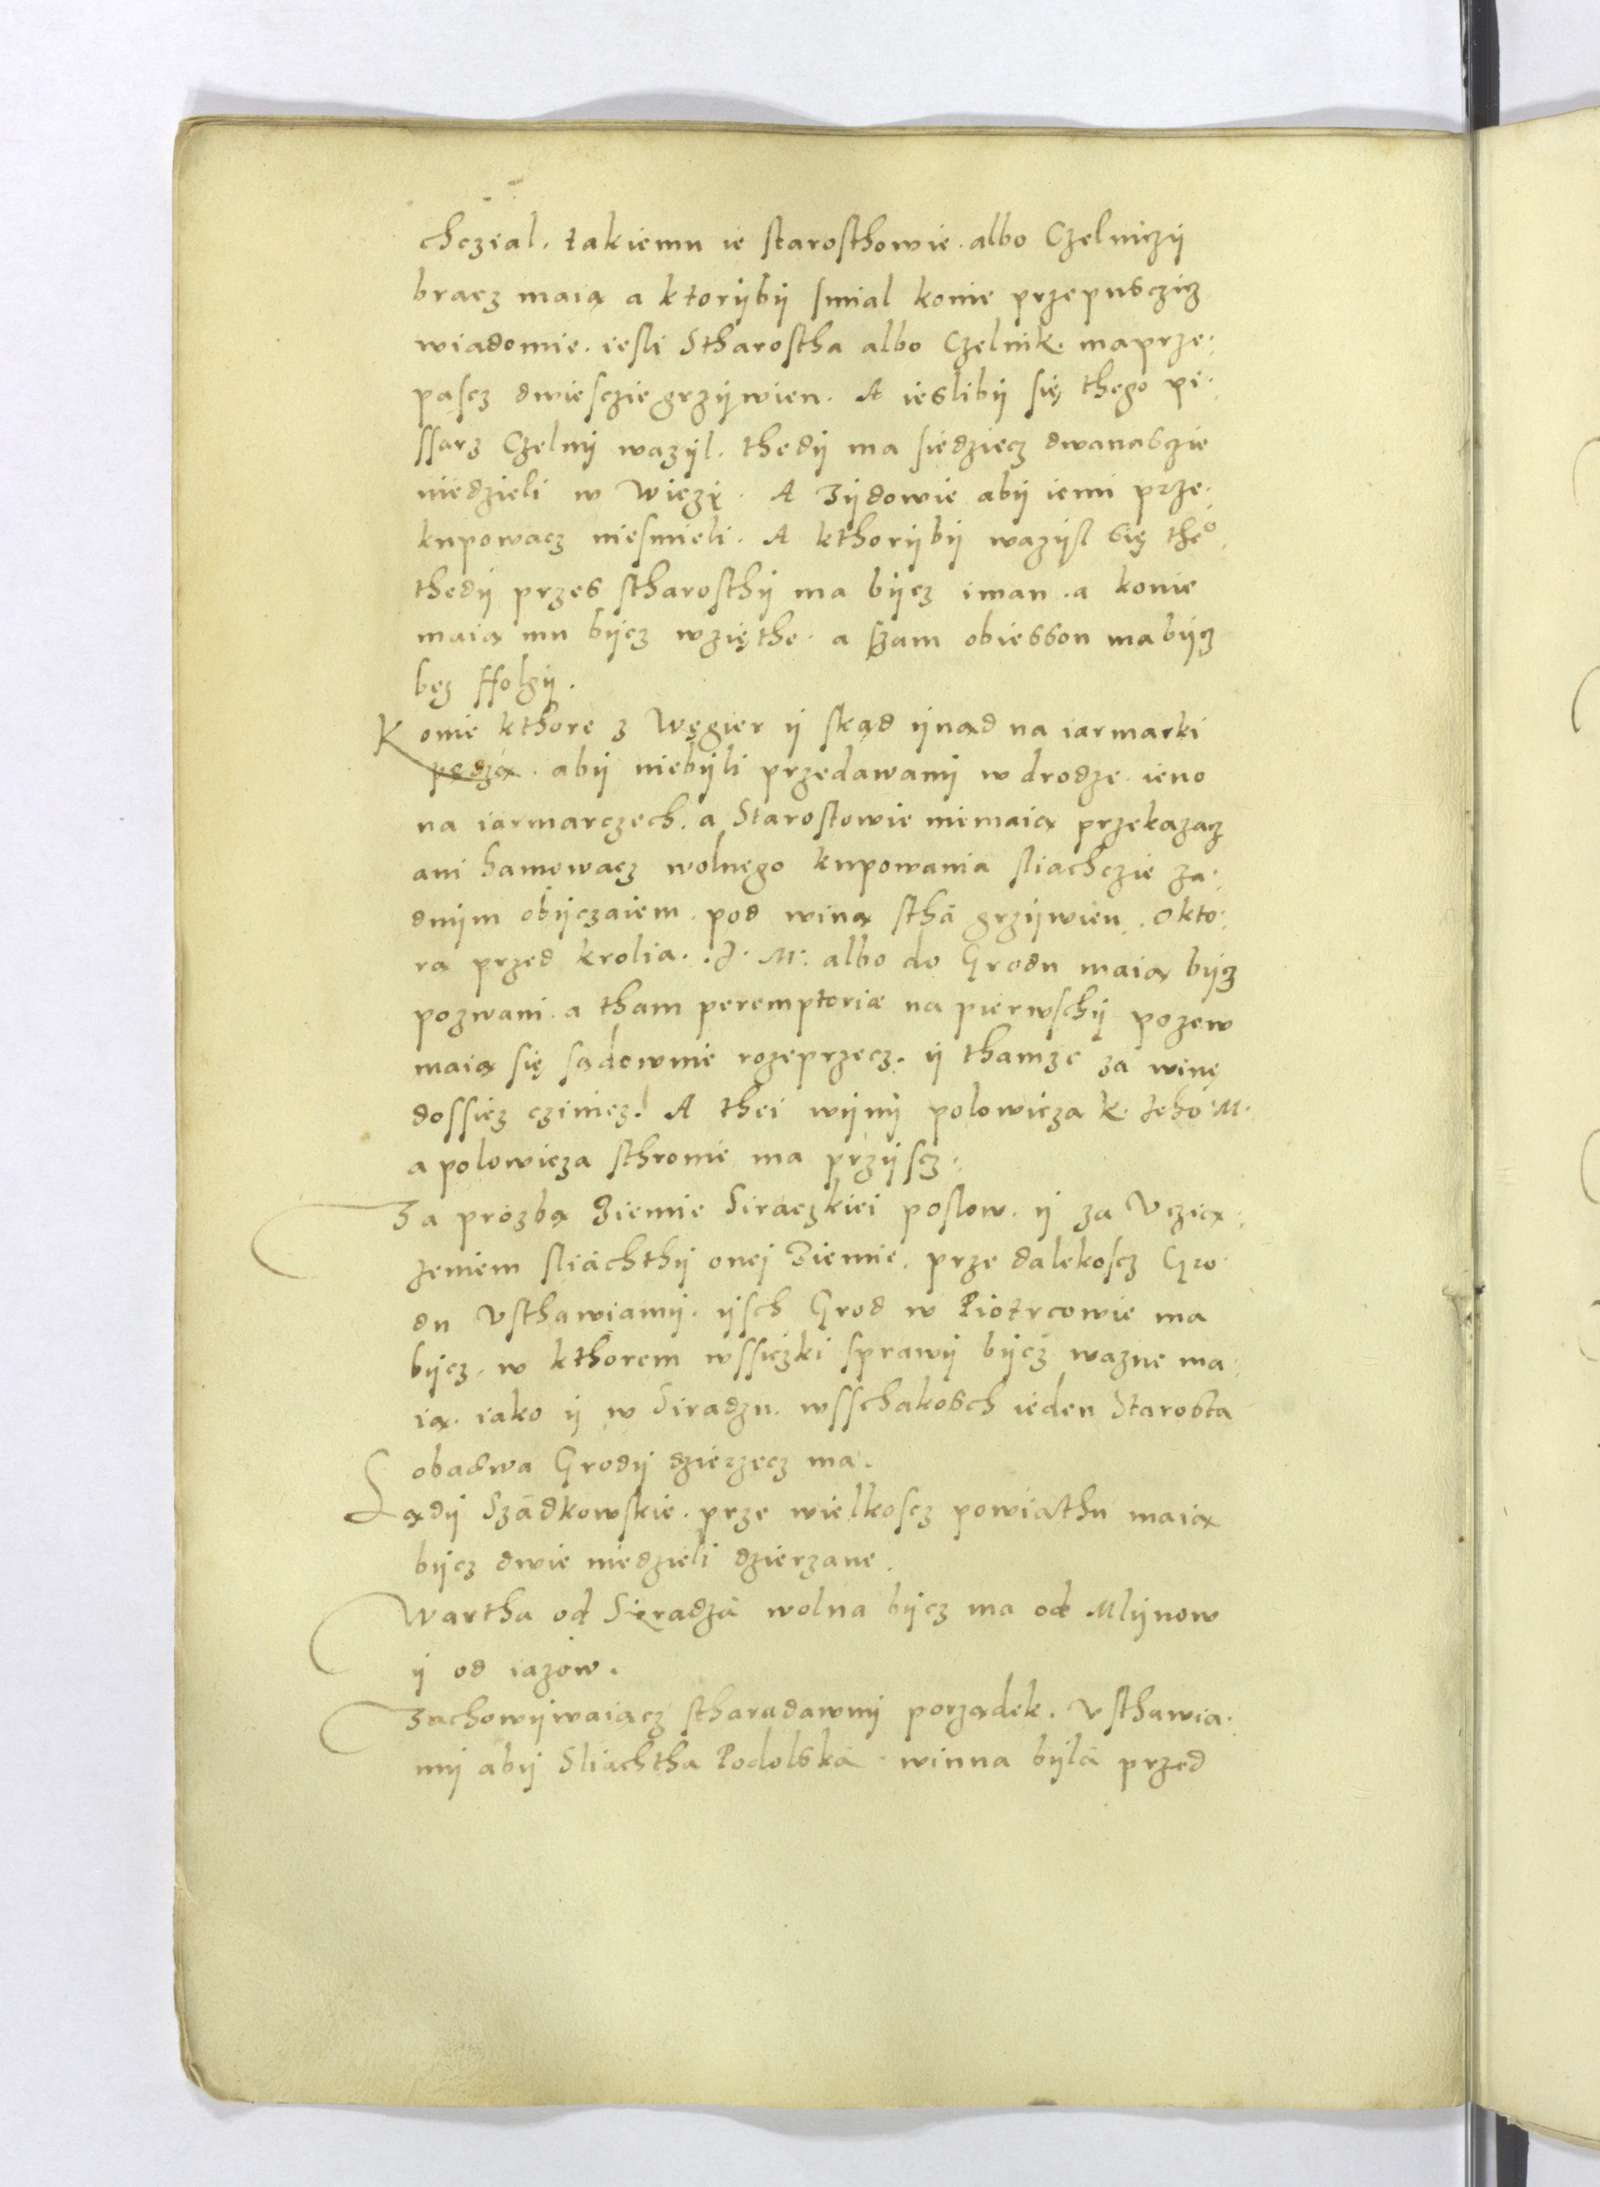 chczial. takiemu ie starosthowie. albo Czelniczy
bracz maią a ktoryby smial konie przepusczicz
wiadomie. iesli Stharostha albo Czelnik. maprze:
pascz dwiesczie grzywien. A iesliby się thego pi:
ssarz Czelny wazyl. thedy ma siedziecz dwanasczie
niedzieli w Wiezy. A Zydowie aby iemi prze:
kupowacz niesmieli. A kthoryby wazysl się the°
thedy przes stharosthy ma bycz iman. a konie
maią mu bycz wzięthe. a szam obiesson ma bycz
bęz ffolgy.
Konie kthore z Węgier y skąd ynąd na iarmarki
pędzą. aby niebyli przedawany w drodze. ieno
na iarmarczech. a Starostowie niemaią przekazacz
ani hamowacz wolnego kupowania sliachczie za:
dnym obyczaiem. pod winą stha grzywien. okto:
rą przed krolia. J. M: albo do Grodu maią bycz
pozwani. a tham peremptoriæ na pierwschy pozew
maią się sądownie rozeprzecz. y thamze za winę
dossicz czinicz. A thei wyny polowicza k. Jeho M.
a polowicza sthronie ma przyscz.
Za prozbą Ziemie Siraczkiei poslow. y za Vczią:
zeniem sliachthy onej Ziemie. prze dalekoscz Gro:
du Vsthawiamy. ysch Grod w Piotrcowie ma
bycz. w kthorem wssiczki sprawy bycz wazne ma:
ią. iako y w Siradzu. wsschakosch ieden Starosta
obadwa Grody dzierzecz ma.
Sądy Szadkowskie. prze wielkoscz powiathu maią
bycz dwie niedzieli dzierzane.
Wartha od Sieradza wolna bycz ma od Mlynow
y od iazow.
Zachowywaiącz stharadawny porządek. Vsthawia:
my aby Sliachtha Podolska winna byla przed